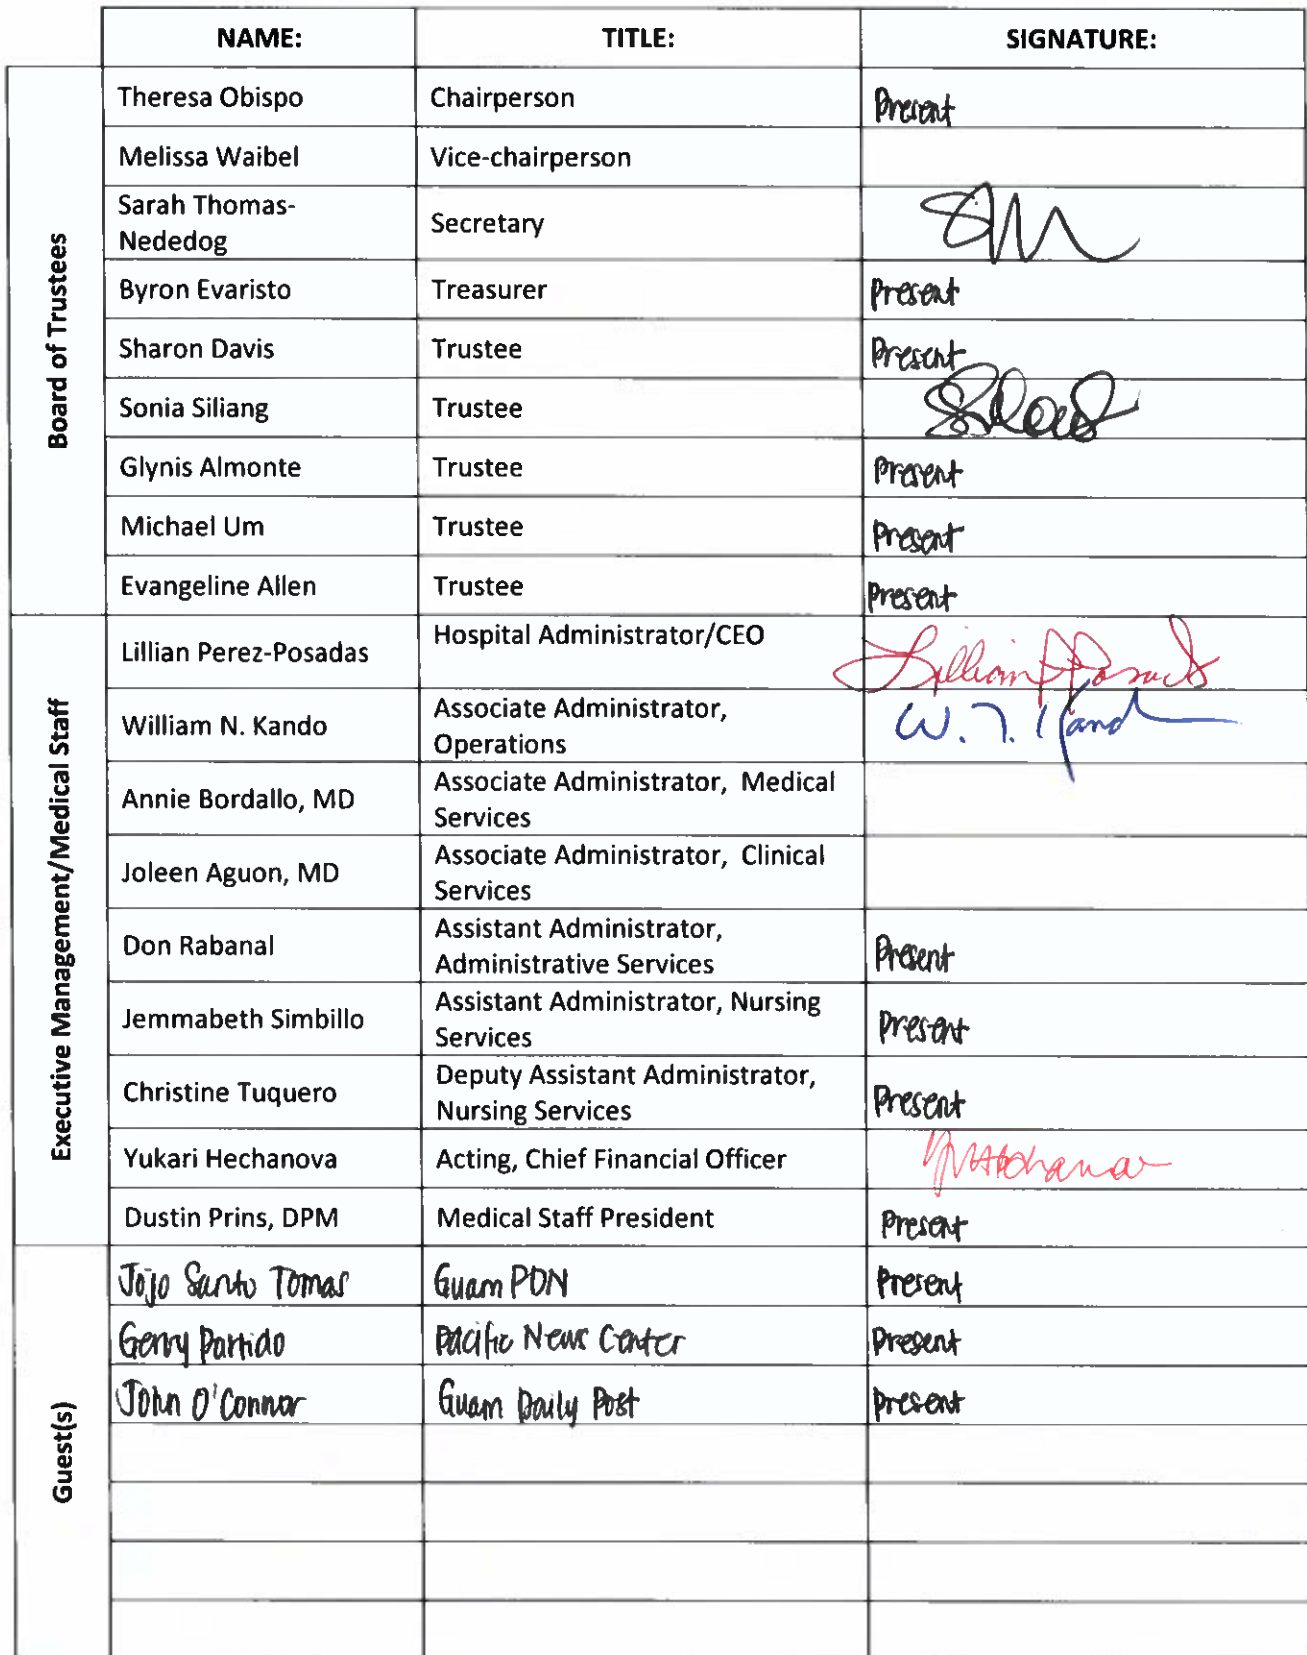 NAME: TITLE: SIGNATURE:
Board of Trustees
Theresa Obispo Chairperson Present
Melissa Waibel Vice-chairperson
Sarah Thomas-
Nededog Secretary
Byron Evaristo Treasurer Present
Sharon Davis Trustee Present
Sonia Siliang Trustee
Glynis Almonte Trustee Present
Michael Um Trustee Present
Evangeline Allen Trustee Present
Executive Management/Medical Staff
Lillian Perez-Posadas Hospital Administrator/CEO Lillian P Posadas
William N. Kando Associate Administrator,
Operations W. N. Kando
Annie Bordallo, MD Associate Administrator, Medical
Services
Joleen Aguon, MD Associate Administrator, Clinical
Services
Don Rabanal Assistant Administrator,
Administrative Services Present
Jemmabeth Simbillo Assistant Administrator, Nursing
Services Present
Christine Tuquero Deputy Assistant Administrator,
Nursing Services Present
Yukari Hechanova Acting, Chief Financial Officer
Dustin Prins, DPM Medical Staff President Present
Guest(s)
Jojo Santo Tomas Guam PDN Present
Gerry Partido Pacific News Center Present
John O'Connor Guam Daily Post Present